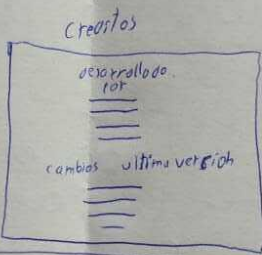 Creditos
desarrollado
por
cambios ultima version